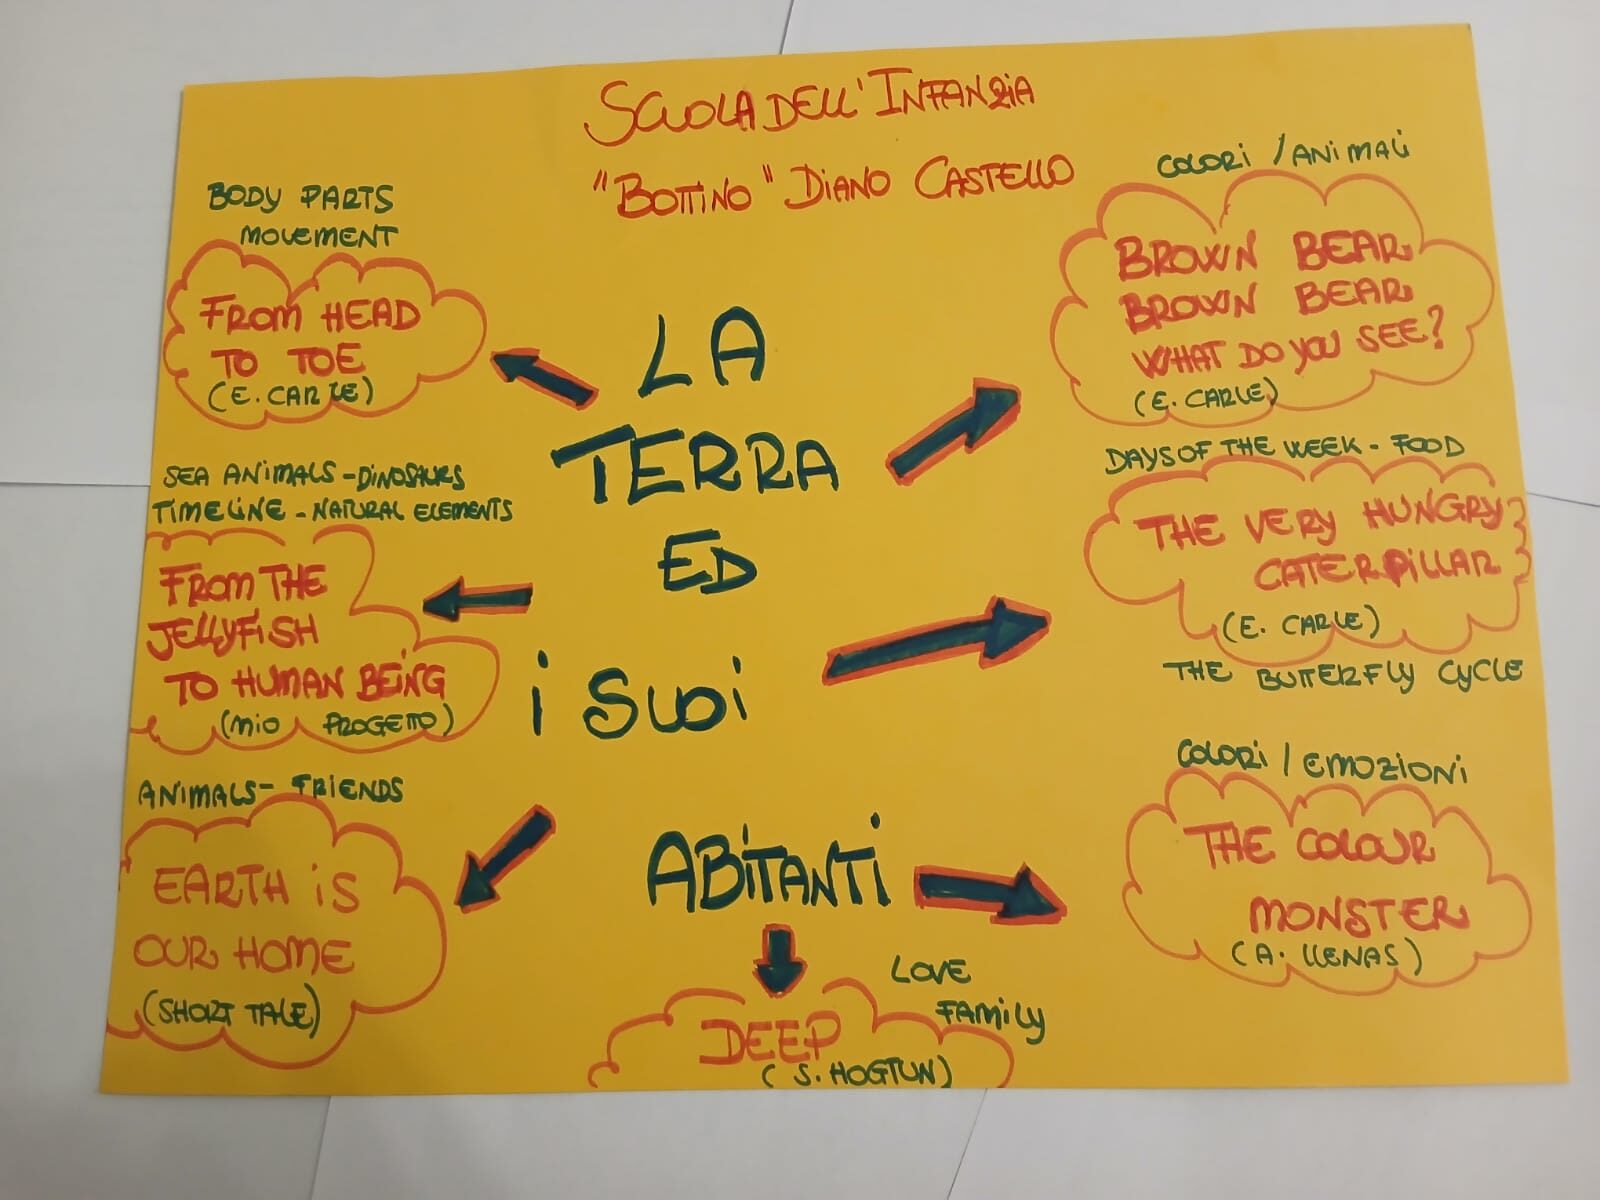 SCUOLA DELL'INFANZIA
"BOTTINO" DIANO CASTELLO
BODY PARTS
MOVEMENT
FROM HEAD
TO TOE
(E. CARLE)
SEA ANIMALS - DINOSAURS
TIMELINE - NATURAL ELEMENTS
FROM THE
JELLYFISH
TO HUMAN BEING
(MIO PROGETTO)
ANIMALS - FRIENDS
EARTH IS
OUR HOME
(SHORT TALE)
LA
TERRA
ED
I SUOI
ABITANTI
LOVE
FAMILY
DEEP
(S. HOGTUN)
COLORI / ANIMALI
BROWN BEAR
BROWN BEAR
WHAT DO YOU SEE?
(E. CARLE)
DAYS OF THE WEEK - FOOD
THE VERY HUNGRY
CATERPILLAR
(E. CARLE)
THE BUTTERFLY CYCLE
COLORI / EMOZIONI
THE COLOUR
MONSTER
(A. LLENAS)